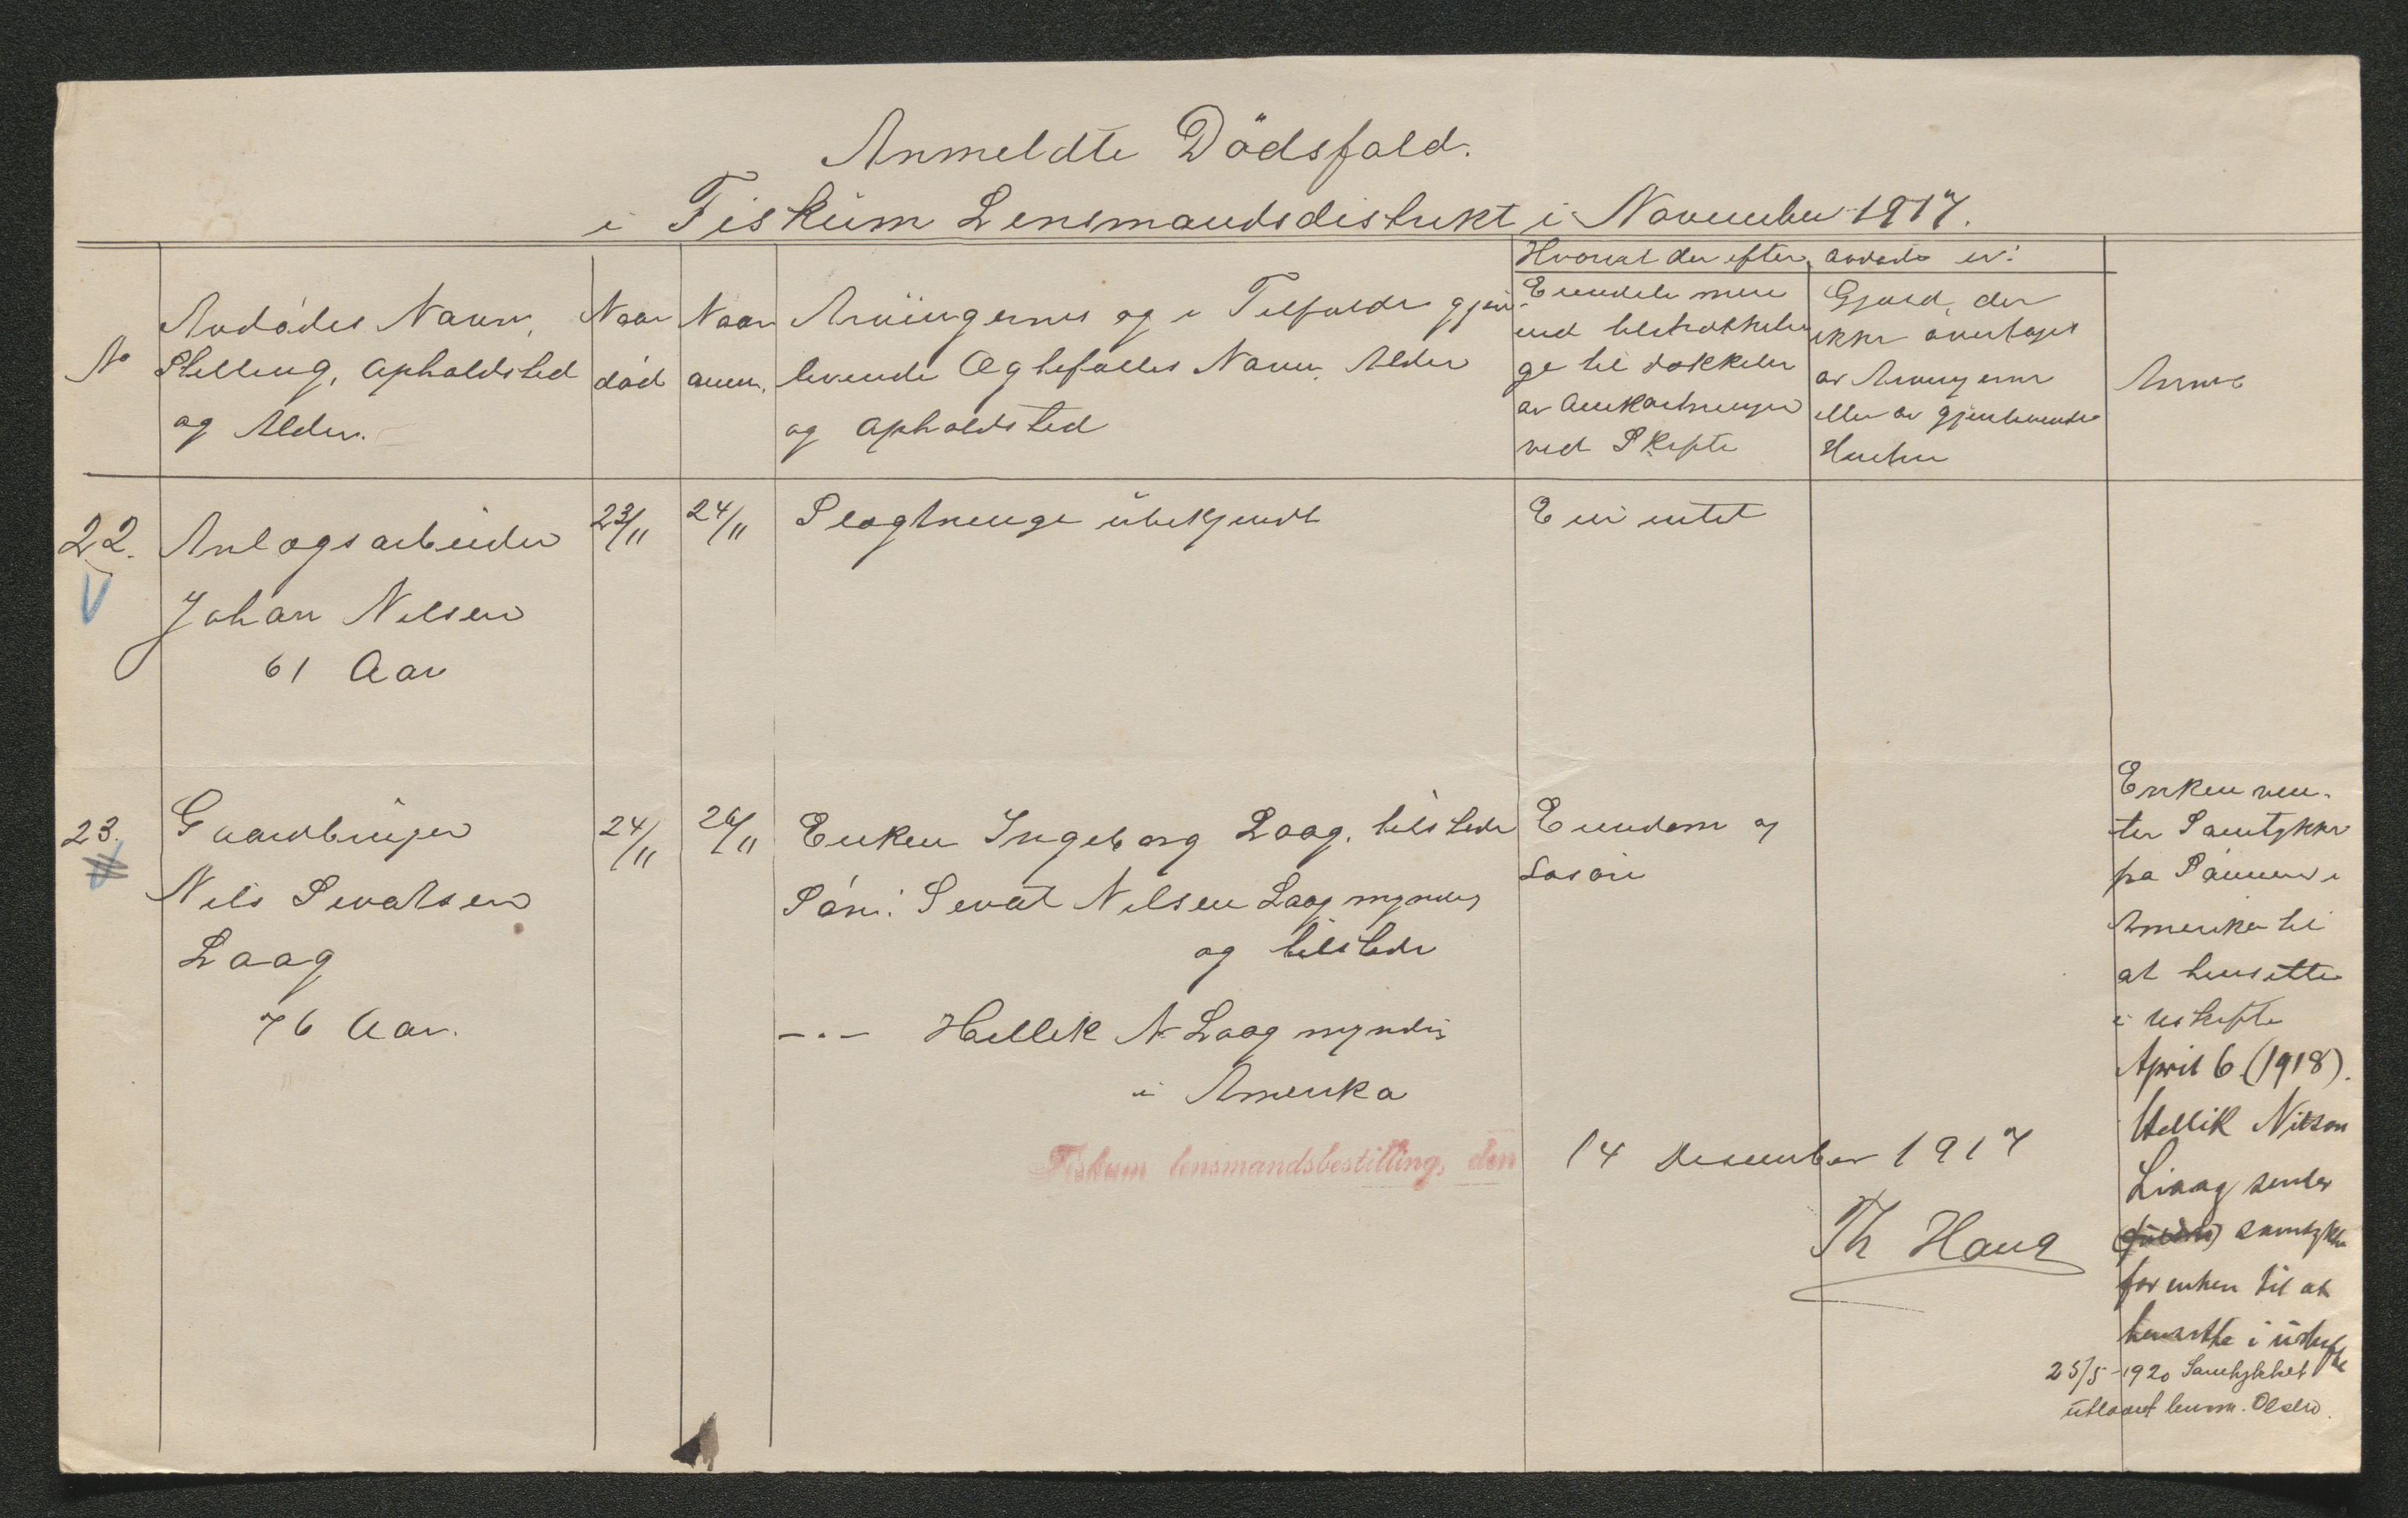 Anmeldte Dödsfald.
i Fiskum Lensmandsdistrikt i November 1917.
No
Avdødes Navn,
Stilling, Opholdsted
og Alder.
Naar
død
Naar
anm.
Arvingernes og i Tilfælde gjen-
levende Ægtefælles Navn, Alder
og Opholdsted
Hvorvat der efter avdøde er:
Eiendele mere
end tilstrækkeli
ge til dækkelse
av Omkostninger
ved Skifte
Gjæld, der
ikke overtages
av Arvingerne
eller av gjenlevende
Hustru
Anm.
22.
Anlægsarbeider
Johan Nilsen
61 Aar
23/11
24/11
Slegtninge übekjendt
Eier intet
23.
Gaardbruger
Nils Sevatsen
Laag
76 Aar.
24/11
26/11
Enken Ingeborg Laag, tilstede
Søn: Sevat Nilsen Laag myndig
og tilstede
-.- Hellik N. Laag myndig
i Amerika
Eiendom og
Løsøre
Enken ven-
ter Samtykke
fra Sønnen i
Amerika til
at hensitte
i uskifte
April 6 (1918).
Hellik Nilson
Liaag sender
samtykke
for enken til at
hensitte i uskifte
25/5-1920 Samtykket
utlaant lensm. Olsen.
Fiskum lensmandsbestilling, den
14 Desember 1917
Th Haug